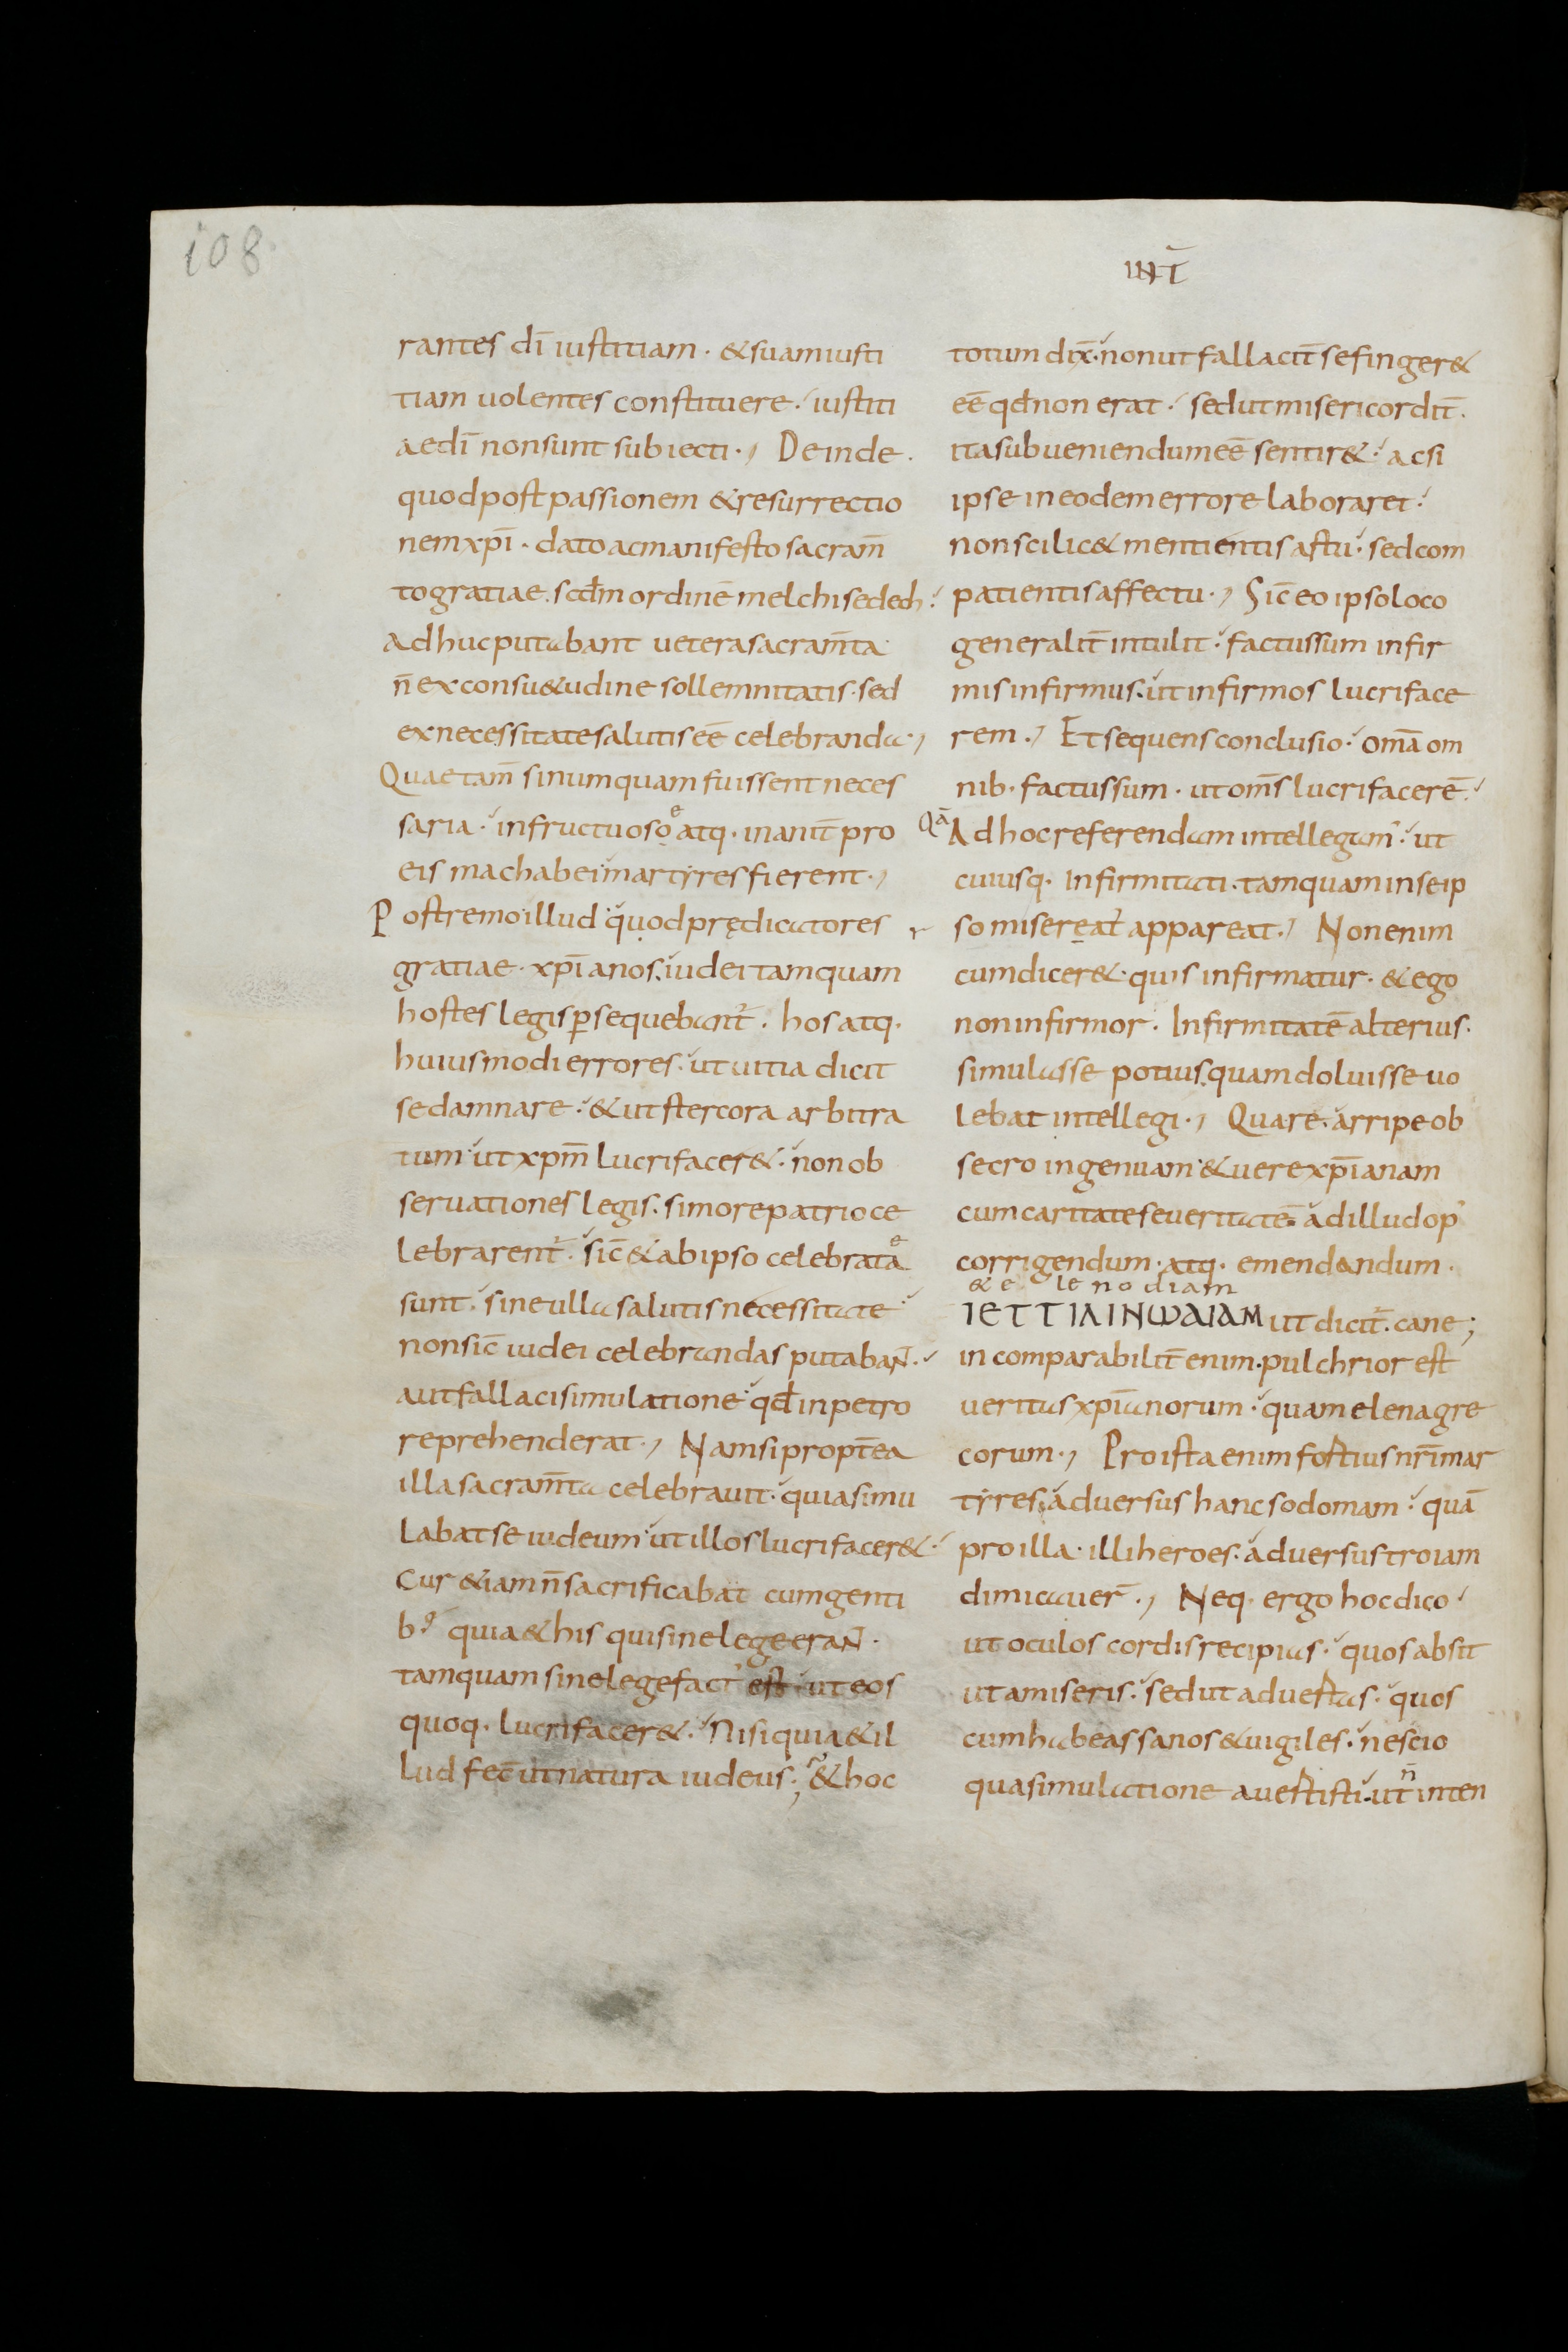 108
INT̄
rantes dī iustitiam · & suam iusti
tiam uolentes constituere · iustiti
ae dī non sunt subiecti · Deinde ·
quod post passionem & resurrectio
nem xpī · dato ac manifesto sacram̄
to gratiae scd̄m ordinē melchisedech ·
Adhuc putabant uetera sacram̄ta
n̄ ex consu&udine sollemnitatis · sed
ex necessitate salutis eē celebranda ·
Quae tam̄ si numquam fuissent neces
saria · infructuosọe atq · inanit̄ pro
eis machabei martyres fierent ·
Postremo illud quod prędicatores
gratiae · xpīanos · iudei tamquam
hostes legis ꝑsequebant̄ · hos atq ·
huiusmodi errores · ut uitia dicit
se damnare · & ut stercora arbitra
tum ut xpm̄ lucrifacer& · non ob
seruationes legis · si more patrio ce
lebrarent̄ · sic̄ & ab ipso celebratae
sunt · sine ulla salutis necessitate
non sic̄ iudei celebrandas putabaN̄ ·
aut fallaci simulatione qd̄ in petro
reprehenderat · Nam si propt̄ea
illa sacram̄ta celebrauit · quia simu
labat se iudeum ut illos lucrifacer& ·
Cur &iam n̄ sacrificabat cum genti
b · quia & his qui sine lege eraN̄ ·
tamquam sine lege fact' est · ut eos
quoq · lucrifacer& · Nisi quia & il
lud fec̄ ut natura iudeus ; & hoc
totum dix̄ · non ut fallacit̄ se finger&
eē qd̄ non erat · sed ut misericordit̄ ·
ita subueniendum eē sentir& · ac si
ipse in eodem errore laboraret ·
non scilic& mentientis astu · sed com
patientis affectu · Sic̄ eo ipso loco
generalit̄ intulit · factus sum infir
mis infirmus · ut infirmos lucriface
rem · Et sequens conclusio · om̄a om
nib · factus sum · ut om̄s lucrifacerē ·
Qā
Ad hoc referendam intellegam̄ · ut
cuiusq · infirmitati · tamquam in se ip
so misereat̄ appareat · Non enim
cum dicer& · quis infirmatur · & ego
non infirmor · Infirmitatē alterius ·
simulasse potius quam doluisse uo
lebat intellegi · Quare · arripe ob
secro ingenuam & uere xpīanam
cum caritate seueritatē · ad illud op'
corrigendum · atq · emendandum ·
& e le no diam
IETTIΛINωAIAM ut dicit̄ · cane ;
incomparabilit̄ enim · pulchrior est
ueritas xpīanorum · quam elena gre
corum · Pro ista enim fortius nr̄i mar
tyres · aduersus hanc sodomam · quā
pro illa · illi heroes · aduersus troiam
dimicauer̄ · Neq · ergo hoc dico
ut oculos cordis recipias · quos absit
ut amiseris · sed ut aduertas · quos
cum habeas sanos & uigiles · nescio
qua simulatione auertisti · ut n̄ inten